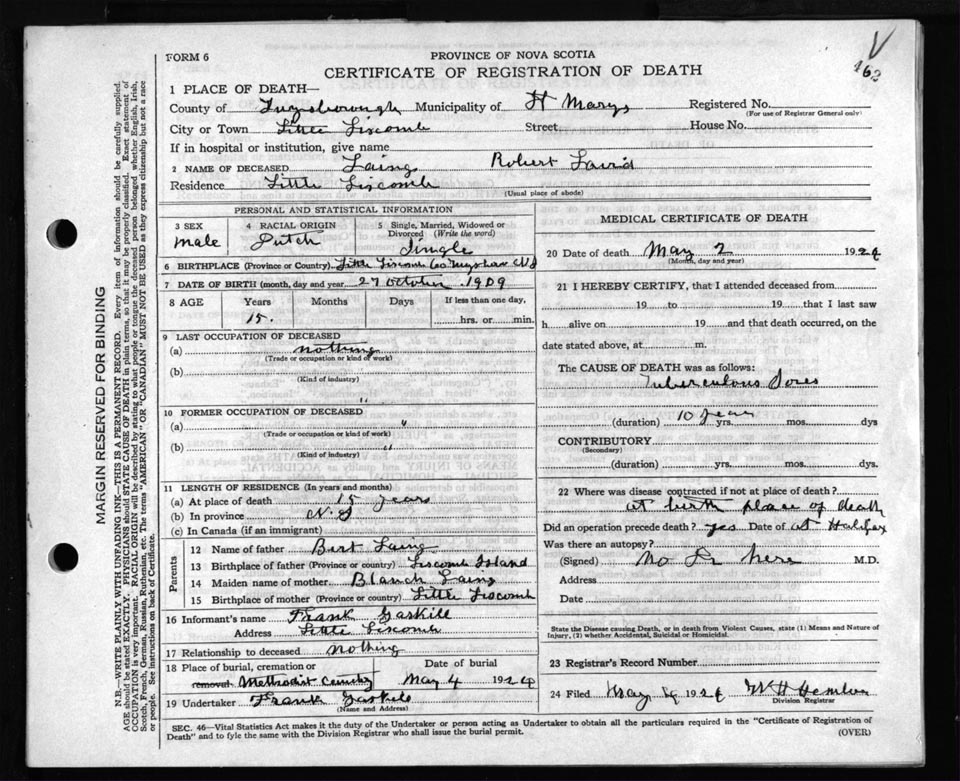 V
162
FORM 6
PROVINCE OF NOVA SCOTIA
CERTIFICATE OF REGISTRATION OF DEATH
1 PLACE OF DEATH—
County of Guysborough Municipality of St Marys Registered No.
(For use of Registrar General only)
City or Town Little Liscomb Street House No.
If in hospital or institution, give name
2 NAME OF DECEASED Laing Robert Laird
Residence Little Liscomb
(Usual place of abode)
PERSONAL AND STATISTICAL INFORMATION
3 SEX male
4 RACIAL ORIGIN Dutch
5 Single, Married, Widowed or Divorced (Write the word) Single
6 BIRTHPLACE (Province or Country) Little Liscomb Co N S
7 DATE OF BIRTH (month, day and year) 27 October 1909
8 AGE Years Months Days If less than one day,
15. hrs. or min.
9 LAST OCCUPATION OF DECEASED
(a) nothing
(Trade or occupation or kind of work)
(b)
(Kind of industry)
10 FORMER OCCUPATION OF DECEASED "
(a) "
(Trade or occupation or kind of work)
(b) "
(Kind of industry)
11 LENGTH OF RESIDENCE (In years and months)
(a) At place of death 15 years
(b) In province N. S
(c) In Canada (if an immigrant)
Parents
12 Name of father Bert Laing
13 Birthplace of father (Province or country) Liscomb Island
14 Maiden name of mother Blanch Laing
15 Birthplace of mother (Province or country) Little Liscomb
16 Informant's name Frank Gaskill
Address Little Liscomb
17 Relationship to deceased nothing
18 Place of burial, cremation or removal Methodist Cemetry
Date of burial May 4 1924
19 Undertaker Frank Gaskill
(Name and Address)
MEDICAL CERTIFICATE OF DEATH
20 Date of death May 2 192
(Month, day and year)
21 I HEREBY CERTIFY, that I attended deceased from
19 to 19 that I last saw
h alive on 19 and that death occurred, on the
date stated above, at m.
The CAUSE OF DEATH was as follows:
Tuberculous Sores
(duration) 10 year yrs. mos. dys
CONTRIBUTORY
(Secondary)
(duration) yrs. mos. dys.
22 Where was disease contracted if not at place of death?
at birth place of death
Did an operation precede death? yes Date of at Halifax
Was there an autopsy?
(Signed) No Dr here M.D.
Address
Date
State the Disease causing Death, or in death from Violent Causes, state (1) Means and Nature of
Injury, (2) whether Accidental, Suicidal or Homicidal.
23 Registrar's Record Number
24 Filed May 192 W H
Division Registrar
SEC. 46—Vital Statistics Act makes it the duty of the Undertaker or person acting as Undertaker to obtain all the particulars required in the "Certificate of Registration of
Death" and to fyle the same with the Division Registrar who shall issue the burial permit.
(OVER)
MARGIN RESERVED FOR BINDING
N.B.—WRITE PLAINLY WITH UNFADING INK—THIS IS A PERMANENT RECORD. Every item of information should be carefully supplied.
AGE should be stated EXACTLY. PHYSICIANS should STATE CAUSE OF DEATH in plain terms, so that it may be properly classified. Exact statement of
OCCUPATION is very important. RACIAL ORIGIN will be described by stating to what people or tongue the deceased person belonged whether English, Irish,
Scotch, French, German, Russian, Ruthenian, etc. The terms "AMERICAN" OR "CANADIAN" MUST NOT BE USED as they express citizenship but not a race
or people. See instructions on back of Certificate.